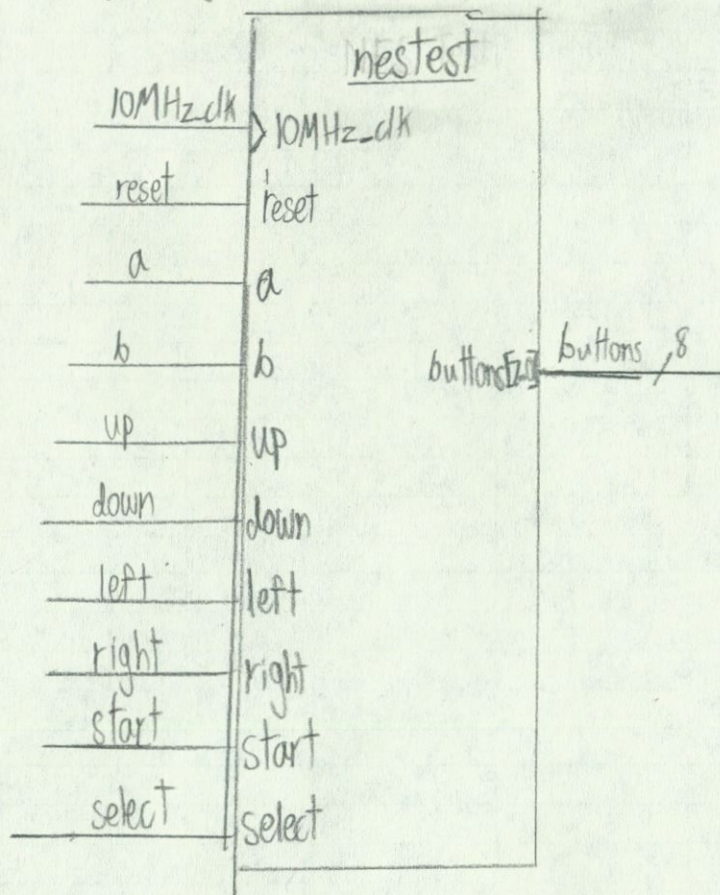 nestest
10MHz_clk
10MHz_clk
reset
reset
a
a
b
b
buttons[7:0]
buttons
8
up
up
down
down
left
left
right
right
start
start
select
select